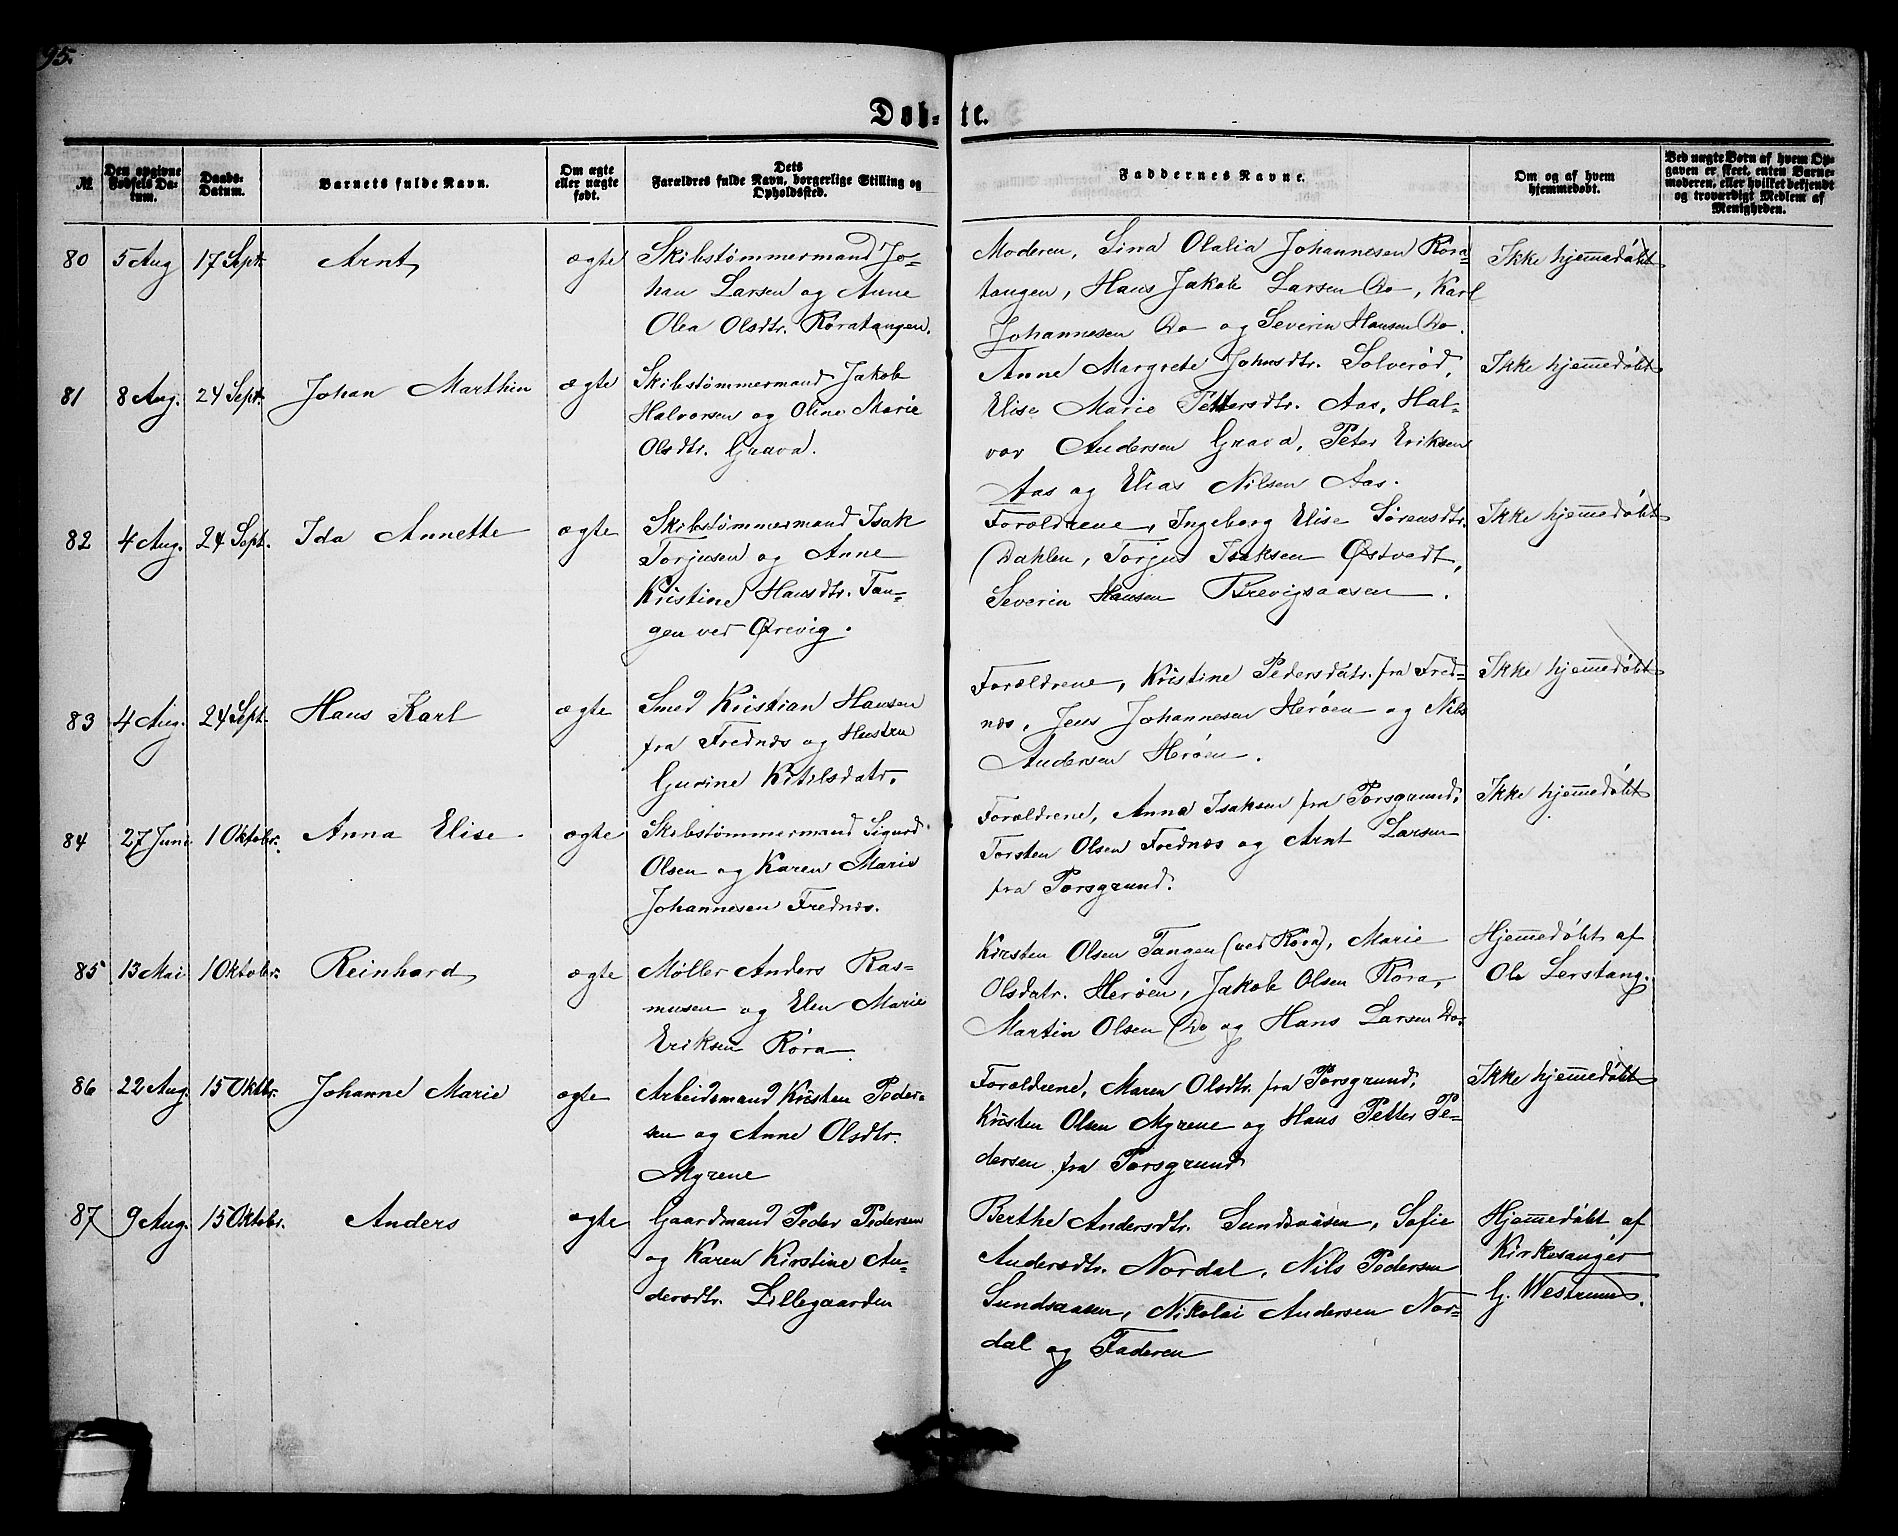 95.
Døb-te.
№
Den opgivne Fødsels Datum.
Daabs-Datum.
Barnets fulde Navn.
Om ægte eller uægte født.
Dets Forældres fulde Navn, borgerlige Stilling og Opholdssted.
Faddernes Navne.
Om og af hvem hjemmedøbt.
Ved uægte Børn af hvem Opgaven er skeet, enten Barnemoderen, eller hvilket bekjendt og troværdigt Medlem af Menigheden.
80 5 Aug 17 Sept. Arnt ægte
Skibstømmermand Jo-
han Larsen og Anne
Olea Olsdtr. Røratangen.
Moderen, Sina Olalia Johannesen Røra-
tangen, Hans Jakob Larsen Do, Karl
Johannesen Do og Severin Hansen Do.
Ikke hjemmedøbt
81 8 Aug. 24 Sept. Johan Marthin ægte
Skibstømmermand Jakob
Halvorsen og Oline Marie
Olsdtr. Grava.
Anne Margrete Johnsdtr. Solverød,
Elise Marie Pettersdtr. Aas, Hal-
vor Andersen Grava, Peter Eriksen
Aas og Elias Nilsen Aas.
Ikke hjemmedøbt
82 4 Aug. 24 Sept. Ida Annette ægte
Skibstømmermand Isak
Torjusen og Anne
Kristine Hansdtr. Tan-
gen ved Ørvig.
Forældrene, Ingeborg Elise Sørensdtr.
Dahlen, Torjus Isaksen Østvedt,
Severin Hansen Brevigsaasen.
Ikke hjemmedøbt
83 4 Aug. 24 Sept. Hans Karl ægte
Smed Kristian Hansen
fra Frednæs og Hustru
Gurine Ketilsdatr.
Forældrene, Kristine Pedersdatr. fra Fred-
næs, Jens Johannesen Herøen og Nils
Andersen Herøen.
Ikke hjemmedøbt
84 27 Juni 1 Oktobr. Anna Elise. ægte
Skibstømmermand Sigurd
Olsen og Karen Marie
Johannesen Frednæs.
Forældrene, Anna Isaksen fra Porsgrund,
Torsten Olsen Frednæs og Arnt Larsen
fra Porsgrund.
Ikke hjemmedøbt
85 13 Mai 1 Oktobr. Reinhard ægte
Møller Anders Ras-
mussen og Elen Marie
Eriksen Røra.
Kirsten Olsen Tangen (ved Røra), Marie
Olsdatr. Herøen, Jakob Olsen Røra,
Martin Olsen Do og Hans Larsen Do.
Hjemmedøbt af
Ole Lerstang.
86 22 Aug. 15 Oktbr. Johanne Marie ægte
Arbeidsmand Kristen Peder-
sen og Anne Olsdtr.
Myrene
Forældrene, Maren Olsdtr. fra Porsgrund,
Kristen Olsen Myrene og Hans Petter Pe-
dersen fra Porsgrund
Ikke hjemmedøbt
87 9 Aug. 15 Oktobr. Anders ægte
Gaardmand Peder Pedersen
og Karen Kirstine An-
dersdtr. Lillegaarden
Berthe Andersdtr. Sundsaasen, Sofie
Andersdtr. Nordal, Nils Pedersen
Sundsaasen, Nikolai Andersen Nor-
dal og Faderen
Hjemmedøbt af
Kirkesanger
G. Westrum.